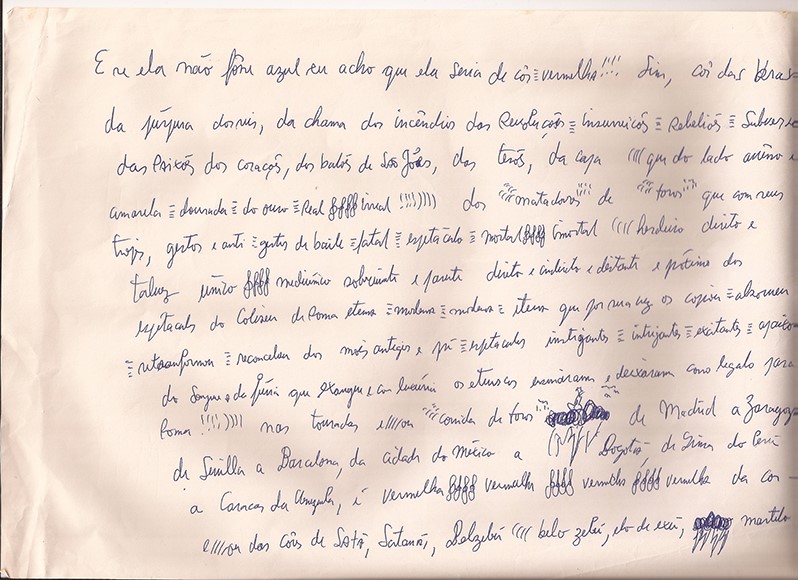 E se ela não fôsse azul eu acho que ela seria de côr ≡ vermelha!!!! Sim, côr das brasas
da púrpura dos reis, da chama dos incêndios das Revoluções ≡ insurreições ≡ Rebeliões ≡
das Paixões dos corações, dos balões de São João, das, da capa (((( que do lado
amarela ≡ dourada ≡ do ouro ≡ Real irreal !!!!)))) dos """matadores""" de """toros""" que com seus
trajes, gestos e anti ≡ gestos de baile ≡ fatal ≡ espetáculo ≡ mortal imortal (((( herdeiro direito e
talvez único mediúnico sobrevivente e parente direto e indireto e distante e próximo dos
espetáculos do Coliseu de Roma eterna ≡ moderna ≡ e que por sua vez os copiou ≡
≡ ≡ dos mais antigos e espetáculos instigantes ≡ intrigantes ≡ excitantes ≡
do Sangue e da fúria que e com luxúria os etruscos ensinaram e deixaram como legado para
Roma !!!!)))) nas touradas e////ou """corrida de toros""" de Madrid a Zaragoza
de Sevilla a Barcelona, da cidade do México a Bogotá, de Lima do Perú
a Caracas da, é vermelha vermelha vermelha vermelha da cor –
e////ou das côres de Satã, Satanás, Belzebú (((( belo zebú, elo de exú, martelo